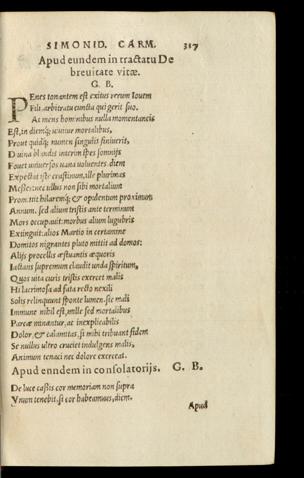 SIMONID. CARM. 317
Apud eundem in tractatu De
breuitate vitæ.
G. B.
PEnes tonantem est exitus rerum Iouem
Fili arbitratu cuncta qui gerit suo.
At mens hominibus nulla momentaneis
Est, in diemq; uiuitur mortalibus,
Prout quidq; numen singulis finiuerit,
Diuina blandis interim spes somnijs
Fouet uniuersos uana voluentes. diem
Expectat iste crastinum, ille plurimas
Messes: nec ullus non sibi mortalium
Promittit hilaremq; & opulentum proximum
Annum. sed alium tristis ante terminum
Mors occupauit: morbus alium lugubris
Extinguit: alios Martio in certamine
Domitos nigrantes pluto mittit ad domos:
Alijs procellis æstuantis æquoris
Iactans supremum claudit unda spiritum,
Quos uita curis tristis exercet malis
Hi lacrimosa ad fata recto nexili
Solis relinquunt sponte lumen. sic mali
Immune nibil est, mille sed mortalibus
Parcæ minantur, ac inexplicabilis
Dolor, & calamitas, si mihi tribuant fidem
Se nullus ultro cruciet indulgens malis,
Animum tenaci nec dolore exerceat.
Apud enndem in consolatorijs. G. B.
De luce cassis cor memoriam non supra
Vnum tenebit, si cor habeamus, diem.
Apud